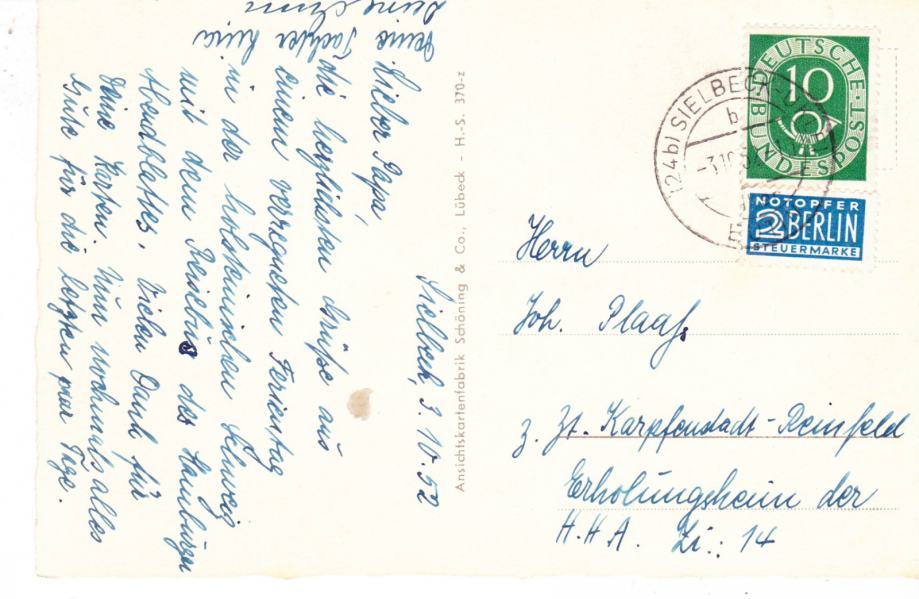 Sielbeck, 3.10.52
Lieber Papa,
die herzlichsten Grüße aus
einem verregneten Ferientag
in der holsteinischen Schweiz
mit dem Reisebus des Hamburger
Abendblattes. Vielen Dank für
Deine Karten. Nun nochmals alles
Gute für die letzten paar Tage.
Deine Tochter
Ansichtskartenfabrik Schöning & Co., Lübeck - H.-S. 370-z
DEUTSCHE BUNDESPOST
10
NOTOPFER
2 BERLIN
STEUERMARKE
(24b) SIELBECK
b
-3.10.52
Herrn
Joh. Plaaß
z. Zt. Karpfenstadt-Reinfeld
Erholungsheim der
H.H.A. Zi.: 14